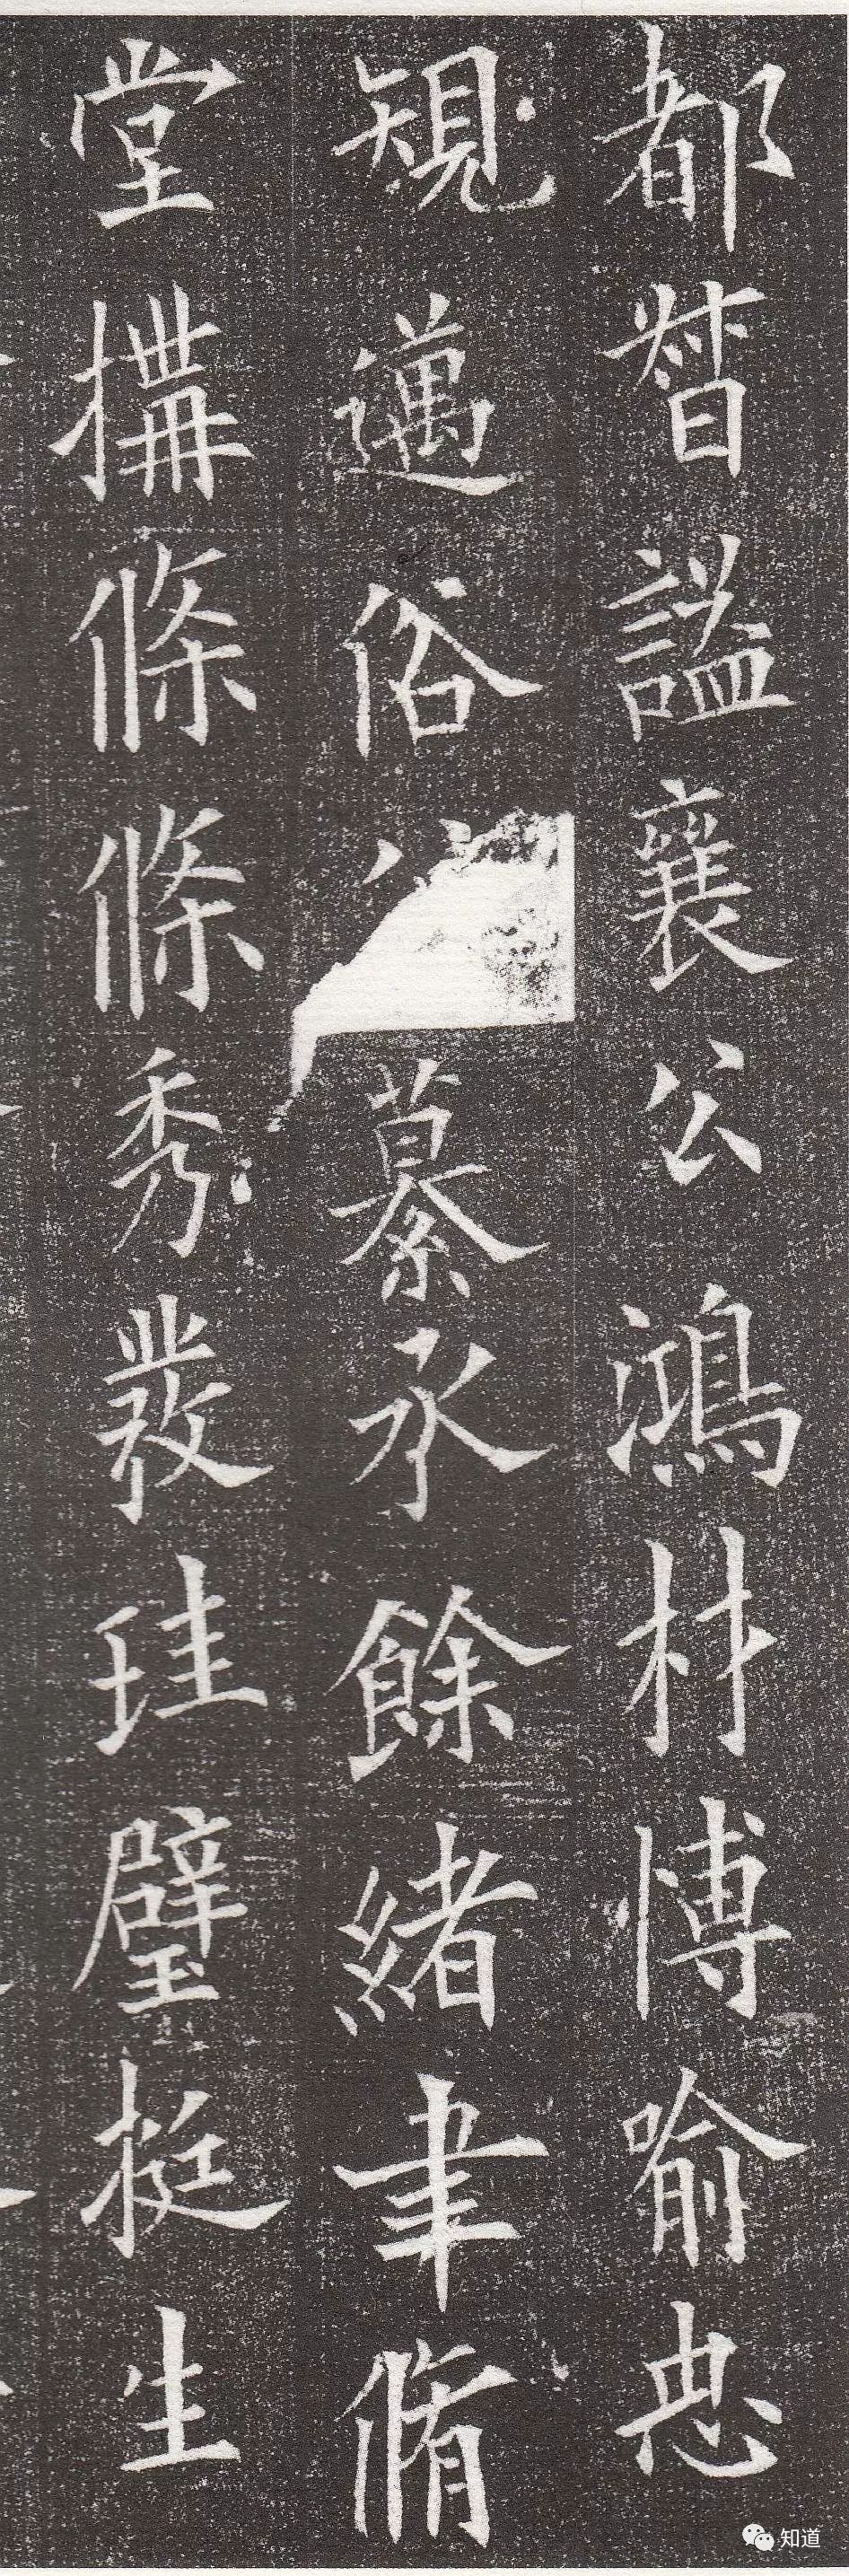 都督謚襄公 鴻材愽喻忠
䂓邁俗纂承餘緒聿脩
堂搆條條秀發珪璧挺生
知道